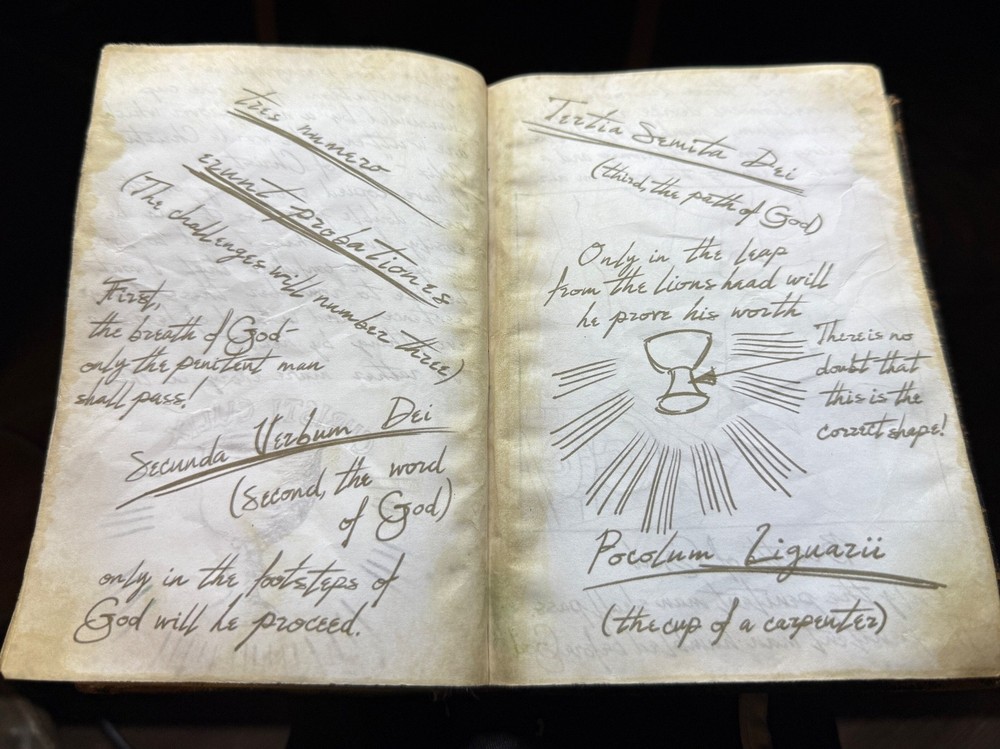 tres numero
erunt probationes
(The challenges will number three)
First,
the breath of God
only the penitent man
shall pass!
Secunda Verbum Dei
(Second, the word
of God)
only in the footsteps of
God will he proceed.
Tertia Semita Dei
(third, the path of God)
Only in the leap
from the lions head will
he prove his worth
There is no
doubt that
this is the
correct shape!
Pocolum Liguarii
(the cup of a carpenter)